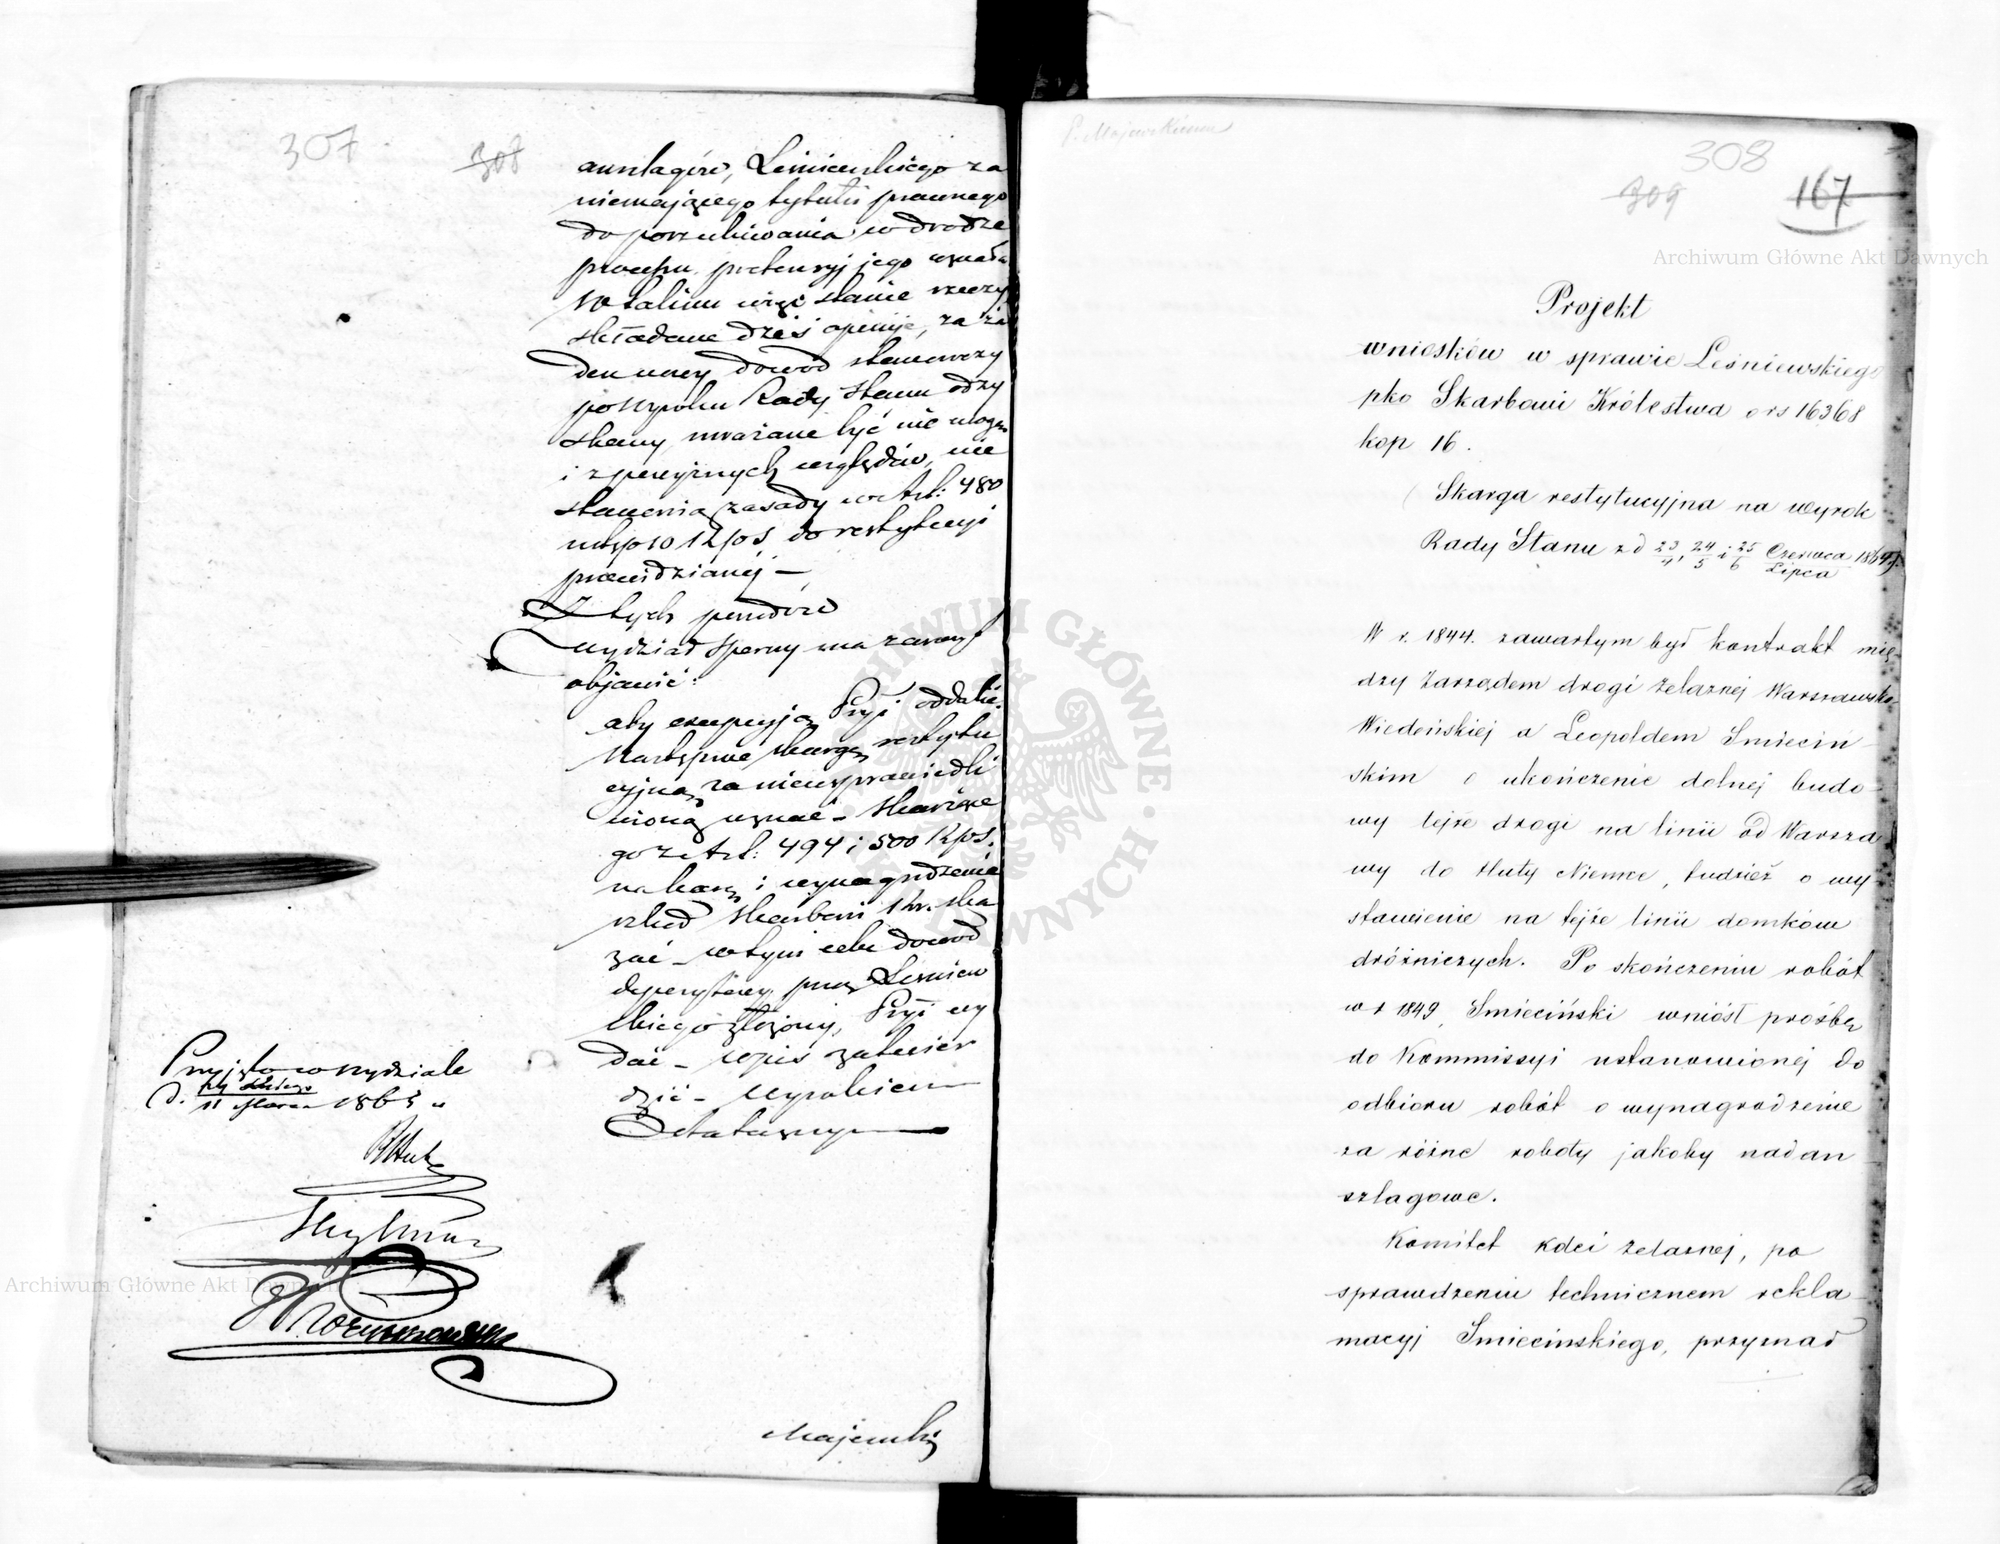 307
308
anszlagów, Leśniewskiego za
niemającego tytułu prawnego
do poszukiwania w drodze
processu pretensyj jego uznała
W takim więc stanie rzeczy
składane dziś opinije, za ża
den nowy dowód stanowczy
po wyroku Rady Stanu odzy
skany, uważane być nie mogą
i z powyższych względów, nie
stanowią zasady w Art: 480
ustęp 10 KPS do restytucyi
przewidzianej —
Z tych powodów
wydział sporny ma zaszczyt
objawić:
aby excepcyją Pryi oddalić.
Następnie skargę restytu
cyjną za nieusprawiedli
wioną uznać — Skarżące
go ze Art: 494 i 500 KPS.
na karę i wynagrodzenie
szkód Skarbowi Kr. ska
zać — w tym celu dowód
depozytowy przez Leśniew
skiego złożony, Pryi wy
dać — wpis zatwier
dzić — wyrokiem
Ostatecznym —
Przyjęto w wydziale
d. 11 Marca 1865 r.
Majewski
P. Majewskiemu
308
309
167
Archiwum Główne Akt Dawnych
Projekt
wniosków w sprawie Leśniewskiego
pko Skarbowi Królestwa o rs 16368
kop 16.
Skarga restytucyjna na wyrok
Rady Stanu z d 23/4, 24/5 i 25/6 Czerwca/Lipca 1864 r.
W r. 1844. zawartym był kontrakt mię
dzy Zarządem drogi żelaznej Warszawsko
Wiedeńskiej a Leopoldem Smieciń
skim o ukończenie dolnej budo
wy tejże drogi na linii od Warsza
wy do Huty Niemce, tudzież o wy
stawienie na tejże linii domków
dróżniczych. Po skończeniu robót
w r 1849, Smieciński wniósł prośbę
do Kommissyi ustanowionej do
odbioru robót o wynagrodzenie
za różne roboty jakoby nadan
szlagowe.
Komitet kolei żelaznej, po
sprawdzeniu technicznem rekla
macyj Smiecińskiego, przyznał
Archiwum Główne Akt Dawnych
ARCHIWUM GŁÓWNE AKT DAWNYCH